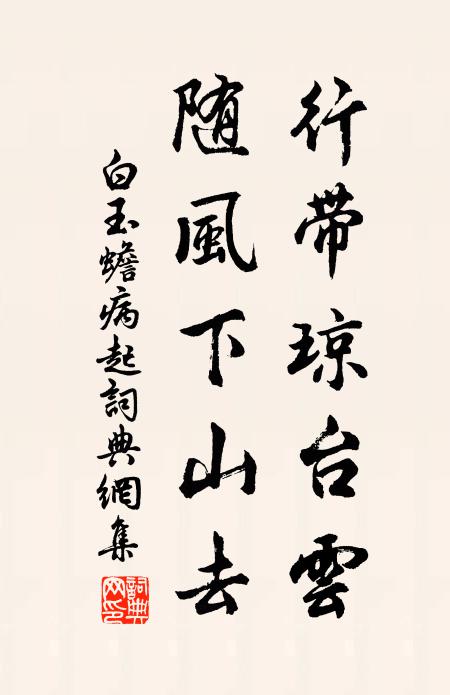 行带琼台雲
随風下山去
白玉蟾病起詞典網集
詞典網印